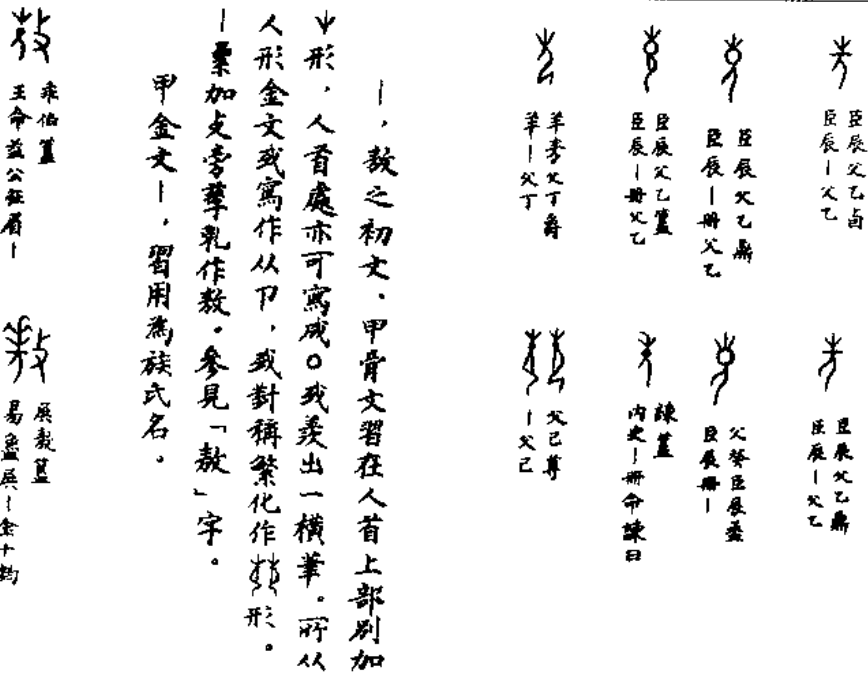 臣辰父乙卣
臣辰｜父乙
臣辰父乙鼎
臣辰｜父乙
臣辰父乙鼎
臣辰｜冊父乙
父癸臣辰盉
臣辰冊｜
臣辰父乙簋
臣辰｜冊父乙
諫簋
內史｜冊命諫曰
父丁爵
｜父丁
父己尊
｜父己
｜，敖之初文、甲骨文習在人首上部別加
形，人首處亦可寫成○或羨出一橫筆。所从
人形金文或寫作从卩，或對稱繁化作形。
｜彙加攴旁孳乳作敖。參見「敖」字。
甲金文｜，習用為族氏名。
乖伯簋
王命益公征眉｜
敖簋
易𥁰｜金十鈞